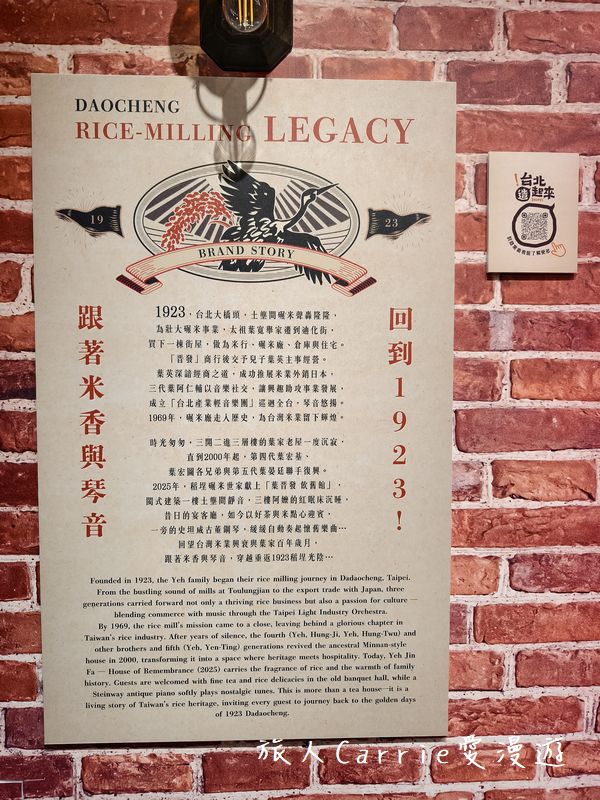 DAOCHENG
RICE-MILLING LEGACY
19 23
BRAND STORY
跟著米香與琴音
回到1923！
1923，台北大橋頭，土壟間碾米聲轟隆隆，
為壯大碾米事業，太祖葉寬舉家遷到迪化街，
買下一棟街屋，做為米行、碾米廠、倉庫與住宅。
「晉發」商行後交予兒子葉英主事經營。
葉英深諳經商之道，成功推展米業外銷日本，
三代葉阿仁輔以音樂社交，讓興趣助攻事業發展，
成立「台北產業輕音樂團」巡迴全台，琴音悠揚。
1969年，碾米廠走入歷史，為台灣米業留下輝煌。
時光匆匆，三開二進三層樓的葉家老屋一度沉寂，
直到2000年起，第四代葉宏基、
葉宏圖各兄弟與第五代葉晏廷聯手復興。
2025年，稻埕碾米世家獻上「葉晉發 敘舊館」，
閩式建築一樓土壟間靜音，三樓阿嬤的紅眠床沉睡，
昔日的宴客廳，如今以好茶與米點心迎賓，
一旁的史坦威古董鋼琴，緩緩自動奏起懷舊樂曲…
回望台灣米業興衰與葉家百年歲月，
跟著米香與琴音，穿越重返1923稻埕光陰…
Founded in 1923, the Yeh family began their rice milling journey in Dadaocheng, Taipei.
From the bustling sound of mills at Toulungjian to the export trade with Japan, three
generations carried forward not only a thriving rice business but also a passion for culture—
blending commerce with music through the Taipei Light Industry Orchestra.
By 1969, the rice mill's mission came to a close, leaving behind a glorious chapter in
Taiwan's rice industry. After years of silence, the fourth (Yeh, Hung-Ji, Yeh, Hung-Twu) and
other brothers and fifth (Yeh, Yen-Ting) generations revived the ancestral Minnan-style
house in 2000, transforming it into a space where heritage meets hospitality. Today, Yeh Jin
Fa — House of Remembrance (2025) carries the fragrance of rice and the warmth of family
history. Guests are welcomed with fine tea and rice delicacies in the old banquet hall, while a
Steinway antique piano softly plays nostalgic tunes. This is more than a tea house—it is a
living story of Taiwan's rice heritage, inviting every guest to journey back to the golden days
of 1923 Dadaocheng.
台北
造起來
旅人Carrie愛漫遊